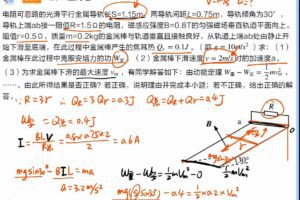 电阻可忽略的光滑平行金属导轨长S=1.15m,两导轨间距L=0.75m,导轨倾角为30°,
导轨上端ab接一阻值R=1.5Ω的电阻,磁感应强度B=0.8T的匀强磁场垂直轨道平面向上,
阻值r=0.5Ω,质量m=0.2kg的金属棒与轨道垂直且接触良好,从轨道上端ab处由静止开
始下滑至底端,在此过程中金属棒产生的焦耳热Qr = 0.1J。(取g=10m/s²)求:(1)
金属棒在此过程中克服安培力的功W安;(2)金属棒下滑速度v=2m/s时的加速度a。
(3)为求金属棒下滑的最大速度vm,有同学解答如下:由动能定理W重-W安=½mvm²,
……。由此所得结果是否正确?若正确,说明理由并完成本小题;若不正确,给出正确的解
答。
∵ R=3r ∴ QR=3Qr=0.3J QR+Qr=0.4J
I = BLV/R总 = 0.8×0.75×2/2 = 0.6A
mgsin30°-BIL=ma
a=3.2m/s²
W重-W安=½mVm²-0
mg(S sin30°)-0.4=½×0.2×Vm²